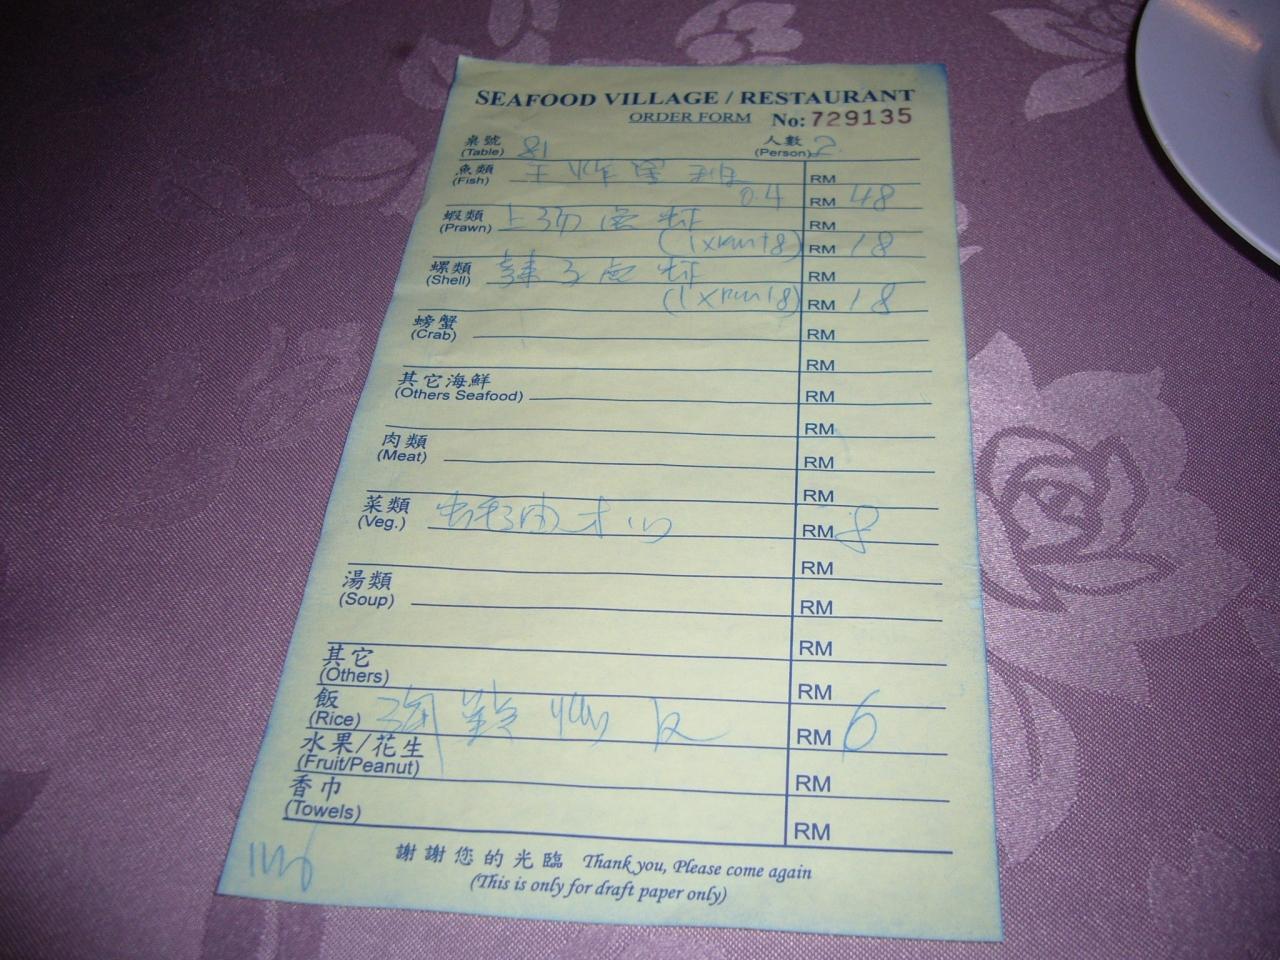 SEAFOOD VILLAGE / RESTAURANT
ORDER FORM No: 729135
桌號 (Table) 81 人數 (Person) 2
魚類 (Fish) RM
0.4 RM 48
蝦類 (Prawn) 上湯 RM
(1xRM18) RM 18
螺類 (Shell) RM
(1xRM18) RM 18
螃蟹 (Crab) RM
RM
其它海鮮 (Others Seafood) RM
RM
肉類 (Meat) RM
RM
菜類 (Veg.) RM 8
RM
湯類 (Soup) RM
RM
其它 (Others) RM
飯 (Rice) RM 6
水果/花生 (Fruit/Peanut) RM
香巾 (Towels) RM
謝謝您的光臨 Thank you, Please come again
(This is only for draft paper only)